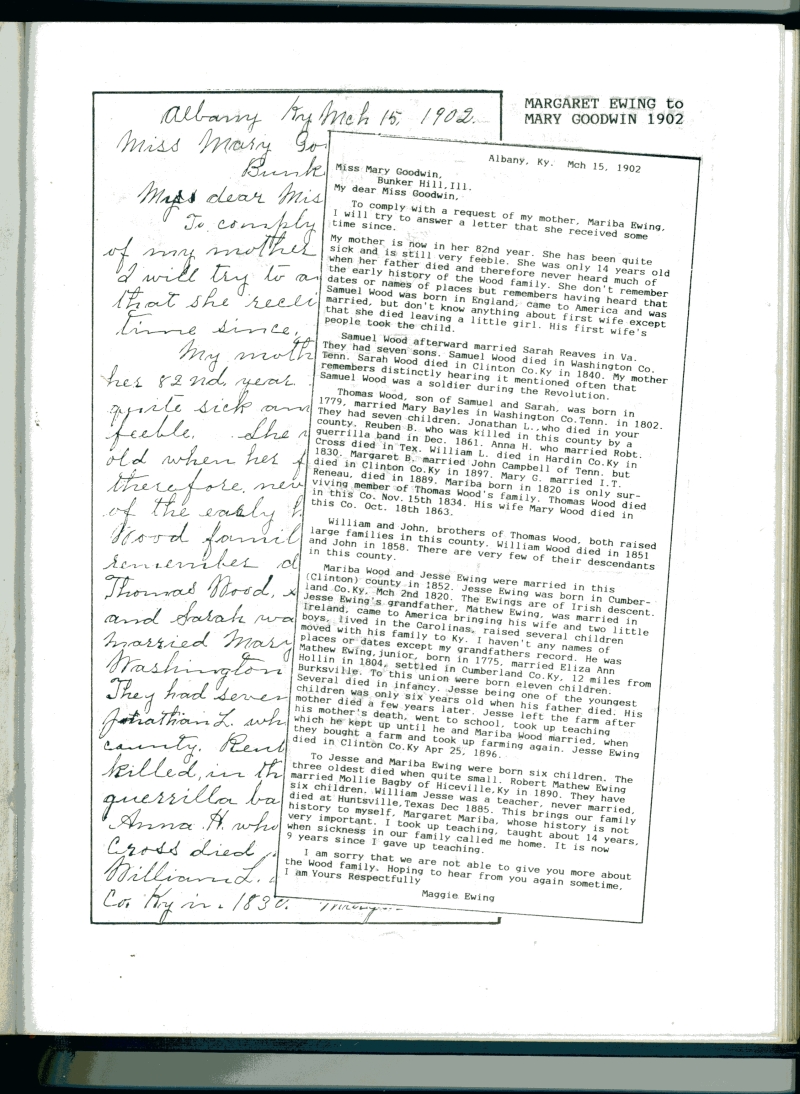 MARGARET EWING to
MARY GOODWIN 1902
Albany Ky Mch 15, 1902.
Miss Mary Go
Bunk
My dear Mis
To comply
of my mother
I will try to a
that she recei
time since,
My moth
her 82nd year
quite sick an
feeble. She
old when her f
therefore, nev
of the early h
Wood famil
remember d
Thomas Wood, s
and Sarah wa
married Mary
Washington
They had seven
Jonathan L. wh
county. Reub
killed, in th
guerrilla ba
Anna H. who
Cross died
William L.
Co. Ky in 1830.
Albany, Ky. Mch 15, 1902
Miss Mary Goodwin,
Bunker Hill,Ill.
My dear Miss Goodwin,
To comply with a request of my mother, Mariba Ewing,
I will try to answer a letter that she received some
time since.
My mother is now in her 82nd year. She has been quite
sick and is still very feeble. She was only 14 years old
when her father died and therefore never heard much of
the early history of the Wood family. She don't remember
dates or names of places but remembers having heard that
Samuel Wood was born in England, came to America and was
married, but don't know anything about first wife except
that she died leaving a little girl. His first wife's
people took the child.
Samuel Wood afterward married Sarah Reaves in Va.
They had seven sons. Samuel Wood died in Washington Co.
Tenn. Sarah Wood died in Clinton Co.Ky in 1840. My mother
remembers distinctly hearing it mentioned often that
Samuel Wood was a soldier during the Revolution.
Thomas Wood, son of Samuel and Sarah, was born in
1779, married Mary Bayles in Washington Co.Tenn. in 1802.
They had seven children. Jonathan L.,who died in your
county. Reuben B. who was killed in this county by a
guerrilla band in Dec. 1861. Anna H. who married Robt.
Cross died in Tex. William L. died in Hardin Co.Ky in
1830. Margaret B. married John Campbell of Tenn. but
died in Clinton Co.Ky in 1897. Mary G. married I.T.
Reneau, died in 1889. Mariba born in 1820 is only sur-
viving member of Thomas Wood's family. Thomas Wood died
in this Co. Nov. 15th 1834. His wife Mary Wood died in
this Co. Oct. 18th 1863.
William and John, brothers of Thomas Wood, both raised
large families in this county. William Wood died in 1851
and John in 1858. There are very few of their descendants
in this county.
Mariba Wood and Jesse Ewing were married in this
(Clinton) county in 1852. Jesse Ewing was born in Cumber-
land Co.Ky, Mch 2nd 1820. The Ewings are of Irish descent.
Jesse Ewing's grandfather, Mathew Ewing, was married in
Ireland, came to America bringing his wife and two little
boys, lived in the Carolinas, raised several children
moved with his family to Ky. I haven't any names of
places or dates except my grandfathers record. He was
Mathew Ewing,junior, born in 1775, married Eliza Ann
Hollin in 1804, settled in Cumberland Co.Ky, 12 miles from
Burksville. To this union were born eleven children.
Several died in infancy. Jesse being one of the youngest
children was only six years old when his father died. His
mother died a few years later. Jesse left the farm after
his mother's death, went to school, took up teaching
which he kept up until he and Mariba Wood married, when
they bought a farm and took up farming again. Jesse Ewing
died in Clinton Co.Ky Apr 25, 1896.
To Jesse and Mariba Ewing were born six children. The
three oldest died when quite small. Robert Mathew Ewing
married Mollie Bagby of Hiceville,Ky in 1890. They have
six children. William Jesse was a teacher, never married,
died at Huntsville,Texas Dec 1885. This brings our family
history to myself, Margaret Mariba, whose history is not
very important. I took up teaching, taught about 14 years,
when sickness in our family called me home. It is now
9 years since I gave up teaching.
I am sorry that we are not able to give you more about
the Wood family. Hoping to hear from you again sometime,
I am Yours Respectfully
Maggie Ewing